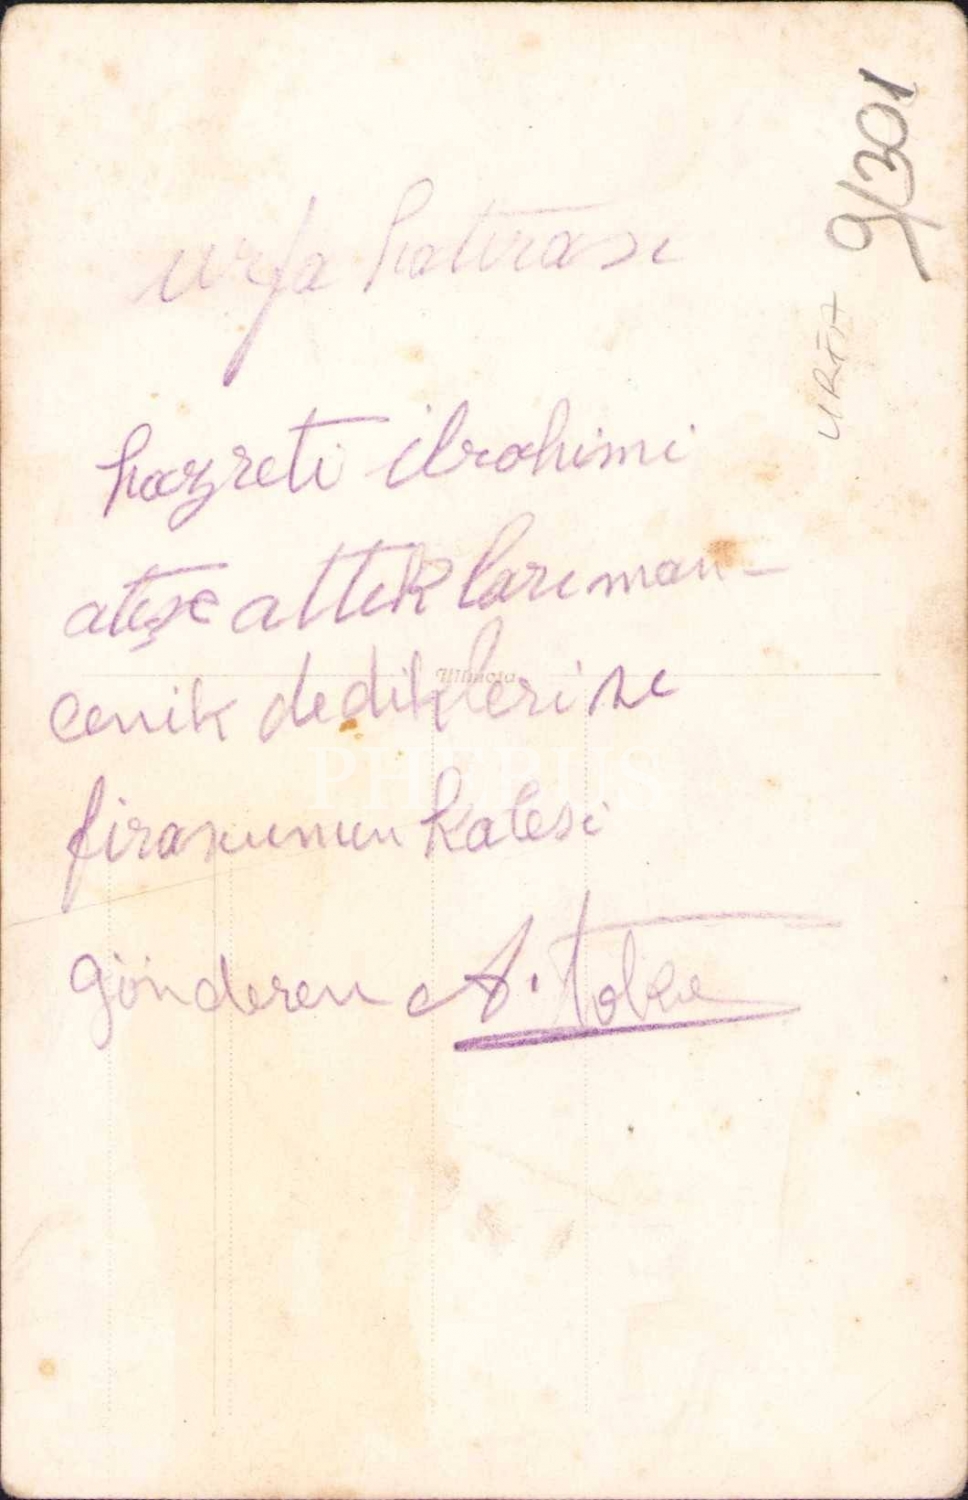 urfa hatırası
hazreti ibrahimi
ateşe attıkları man-
cenik dedikleri ve
firavunun kalesi
gönderen A.
9/301
URFA
PHEBUS